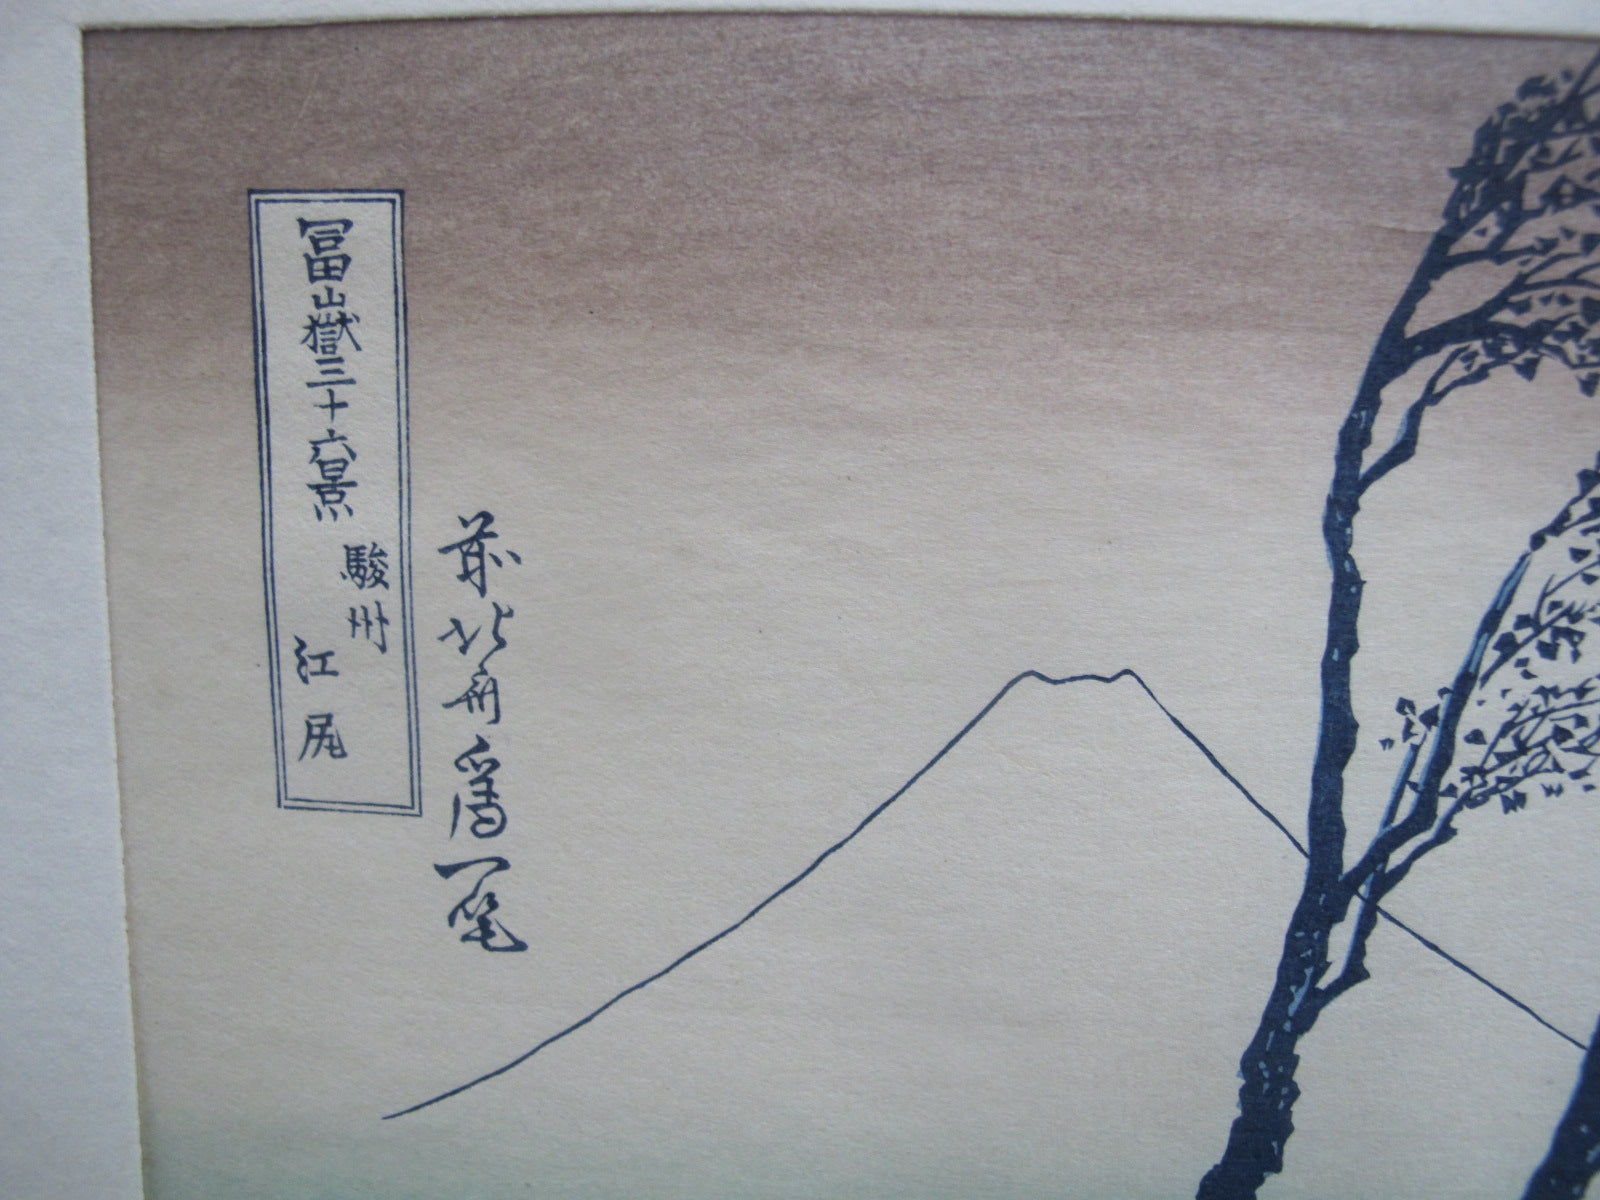 冨嶽三十六景
駿州
江尻
前北斎為一笔